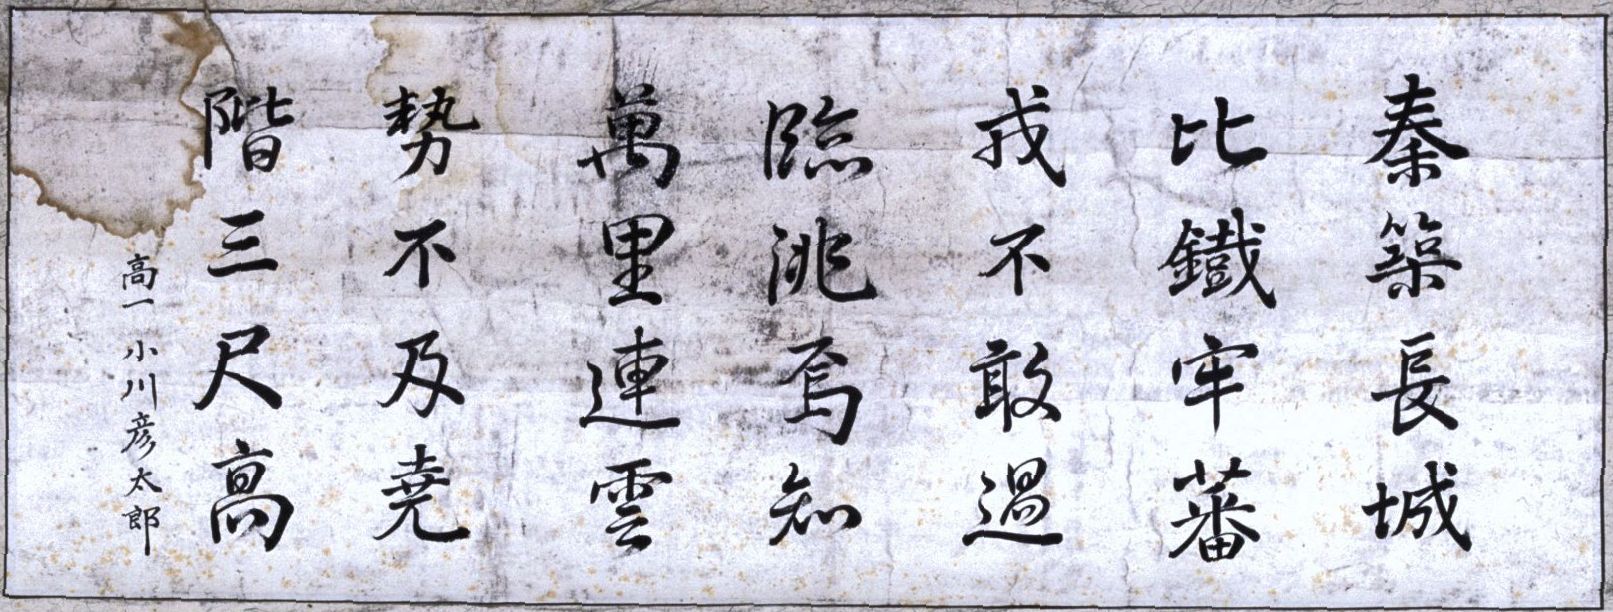 秦築長城
比鐵牢蕃
戎不敢過
臨洮焉知
萬里連雲
勢不及尭
階三尺高
高一 小川彦太郎